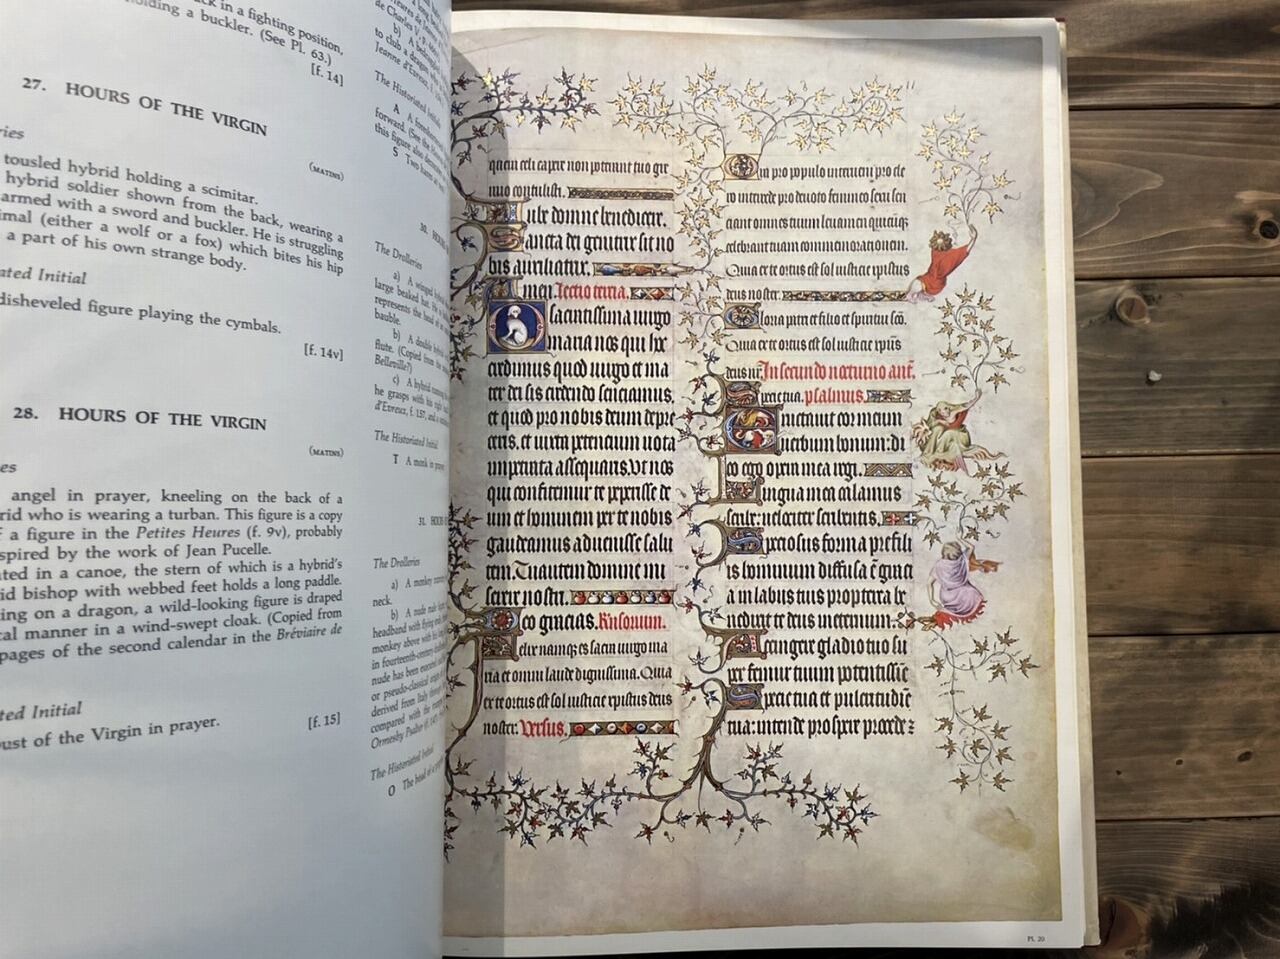 ck in a fighting position,
holding a buckler. (See Pl. 63.)
[f. 14]
27. HOURS OF THE VIRGIN
(MATINS)
ries
tousled hybrid holding a scimitar.
hybrid soldier shown from the back, wearing a
armed with a sword and buckler. He is struggling
imal (either a wolf or a fox) which bites his hip
a part of his own strange body.
ated Initial
disheveled figure playing the cymbals.
[f. 14v]
28. HOURS OF THE VIRGIN
(MATINS)
es
angel in prayer, kneeling on the back of a
rid who is wearing a turban. This figure is a copy
f a figure in the Petites Heures (f. 9v), probably
spired by the work of Jean Pucelle.
ated in a canoe, the stern of which is a hybrid's
id bishop with webbed feet holds a long paddle.
ing on a dragon, a wild-looking figure is draped
cal manner in a wind-swept cloak. (Copied from
pages of the second calendar in the Bréviaire de
ted Initial
ust of the Virgin in prayer.
[f. 15]
de Charles V
b) A
to club a
Jeanne d'Evreux,
The Historiated Initials
A A
forward. (See the
this figure also
S Two
30.
The Drolleries
a) A winged
large beaked
represents the head of
bauble.
b) A double
flute. (Copied from the
Belleville?)
c) A hybrid
he grasps with his right
d'Evreux, f. 157, and
The Historiated Initial
T A monk in prayer
31. HOURS
The Drolleries
a) A monkey
neck.
b) A nude male
headband with flying ends
monkey above with his
in fourteenth-century
nude has been executed
or pseudo-classical
derived from Italy
compared with the
Ormesby Psalter
The Historiated Initial
O The head of a
quem celi capere non poterant tuo gre
mio contulisti.
Iube domne benedicere.
Sancta dei genitrix sit no
bis auxiliatrix.
Amen. Lectio tercia.
O sacratissima uirgo
maria nos qui hec
credimus quod uirgo et ma
ter dei sis credendo senciamus,
et quod pro nobis deum depre
ceris. et iuxta petencium uota
impetrita assequaris. Vt nos
qui confitemur te peperisse de
um et hominem per te nobis
gaudeamus aduenisse salu
tem. Tu autem domine mi
serere nostri.
Deo gracias. Responsorium.
Felix namqz es sacra uirgo ma
ria et omni laude dignissima. Quia
ex te ortus est sol iusticie cpistus deus
noster. Versus.
Ora pro populo interueni pro cle
ro intercede pro deuoto femineo sexu sen
ciant omnes tuum leuamen quicuqz
celebrant tuam commemorationem.
Quia ex te ortus est sol iusticie cpistus
deus noster.
Gloria patri et filio et spiritui sco.
Quia ex te ortus est sol iusticie cpus
deus nr. In secundo nocturno ant.
Specie tua. psalmus.
Eructauit cor meum
uerbum bonum: di
co ego opera mea regi.
Lingua mea calamus
scribe: uelociter scribentis.
Speciosus forma pre fili
is hominum diffusa e graci
a in labiis tuis propterea be
nedixit te deus in eternum.
Accingere gladio tuo su
per femur tuum potentissie
Specie tua et pulcritudie
tua: intende prospere procede:
Pl. 20